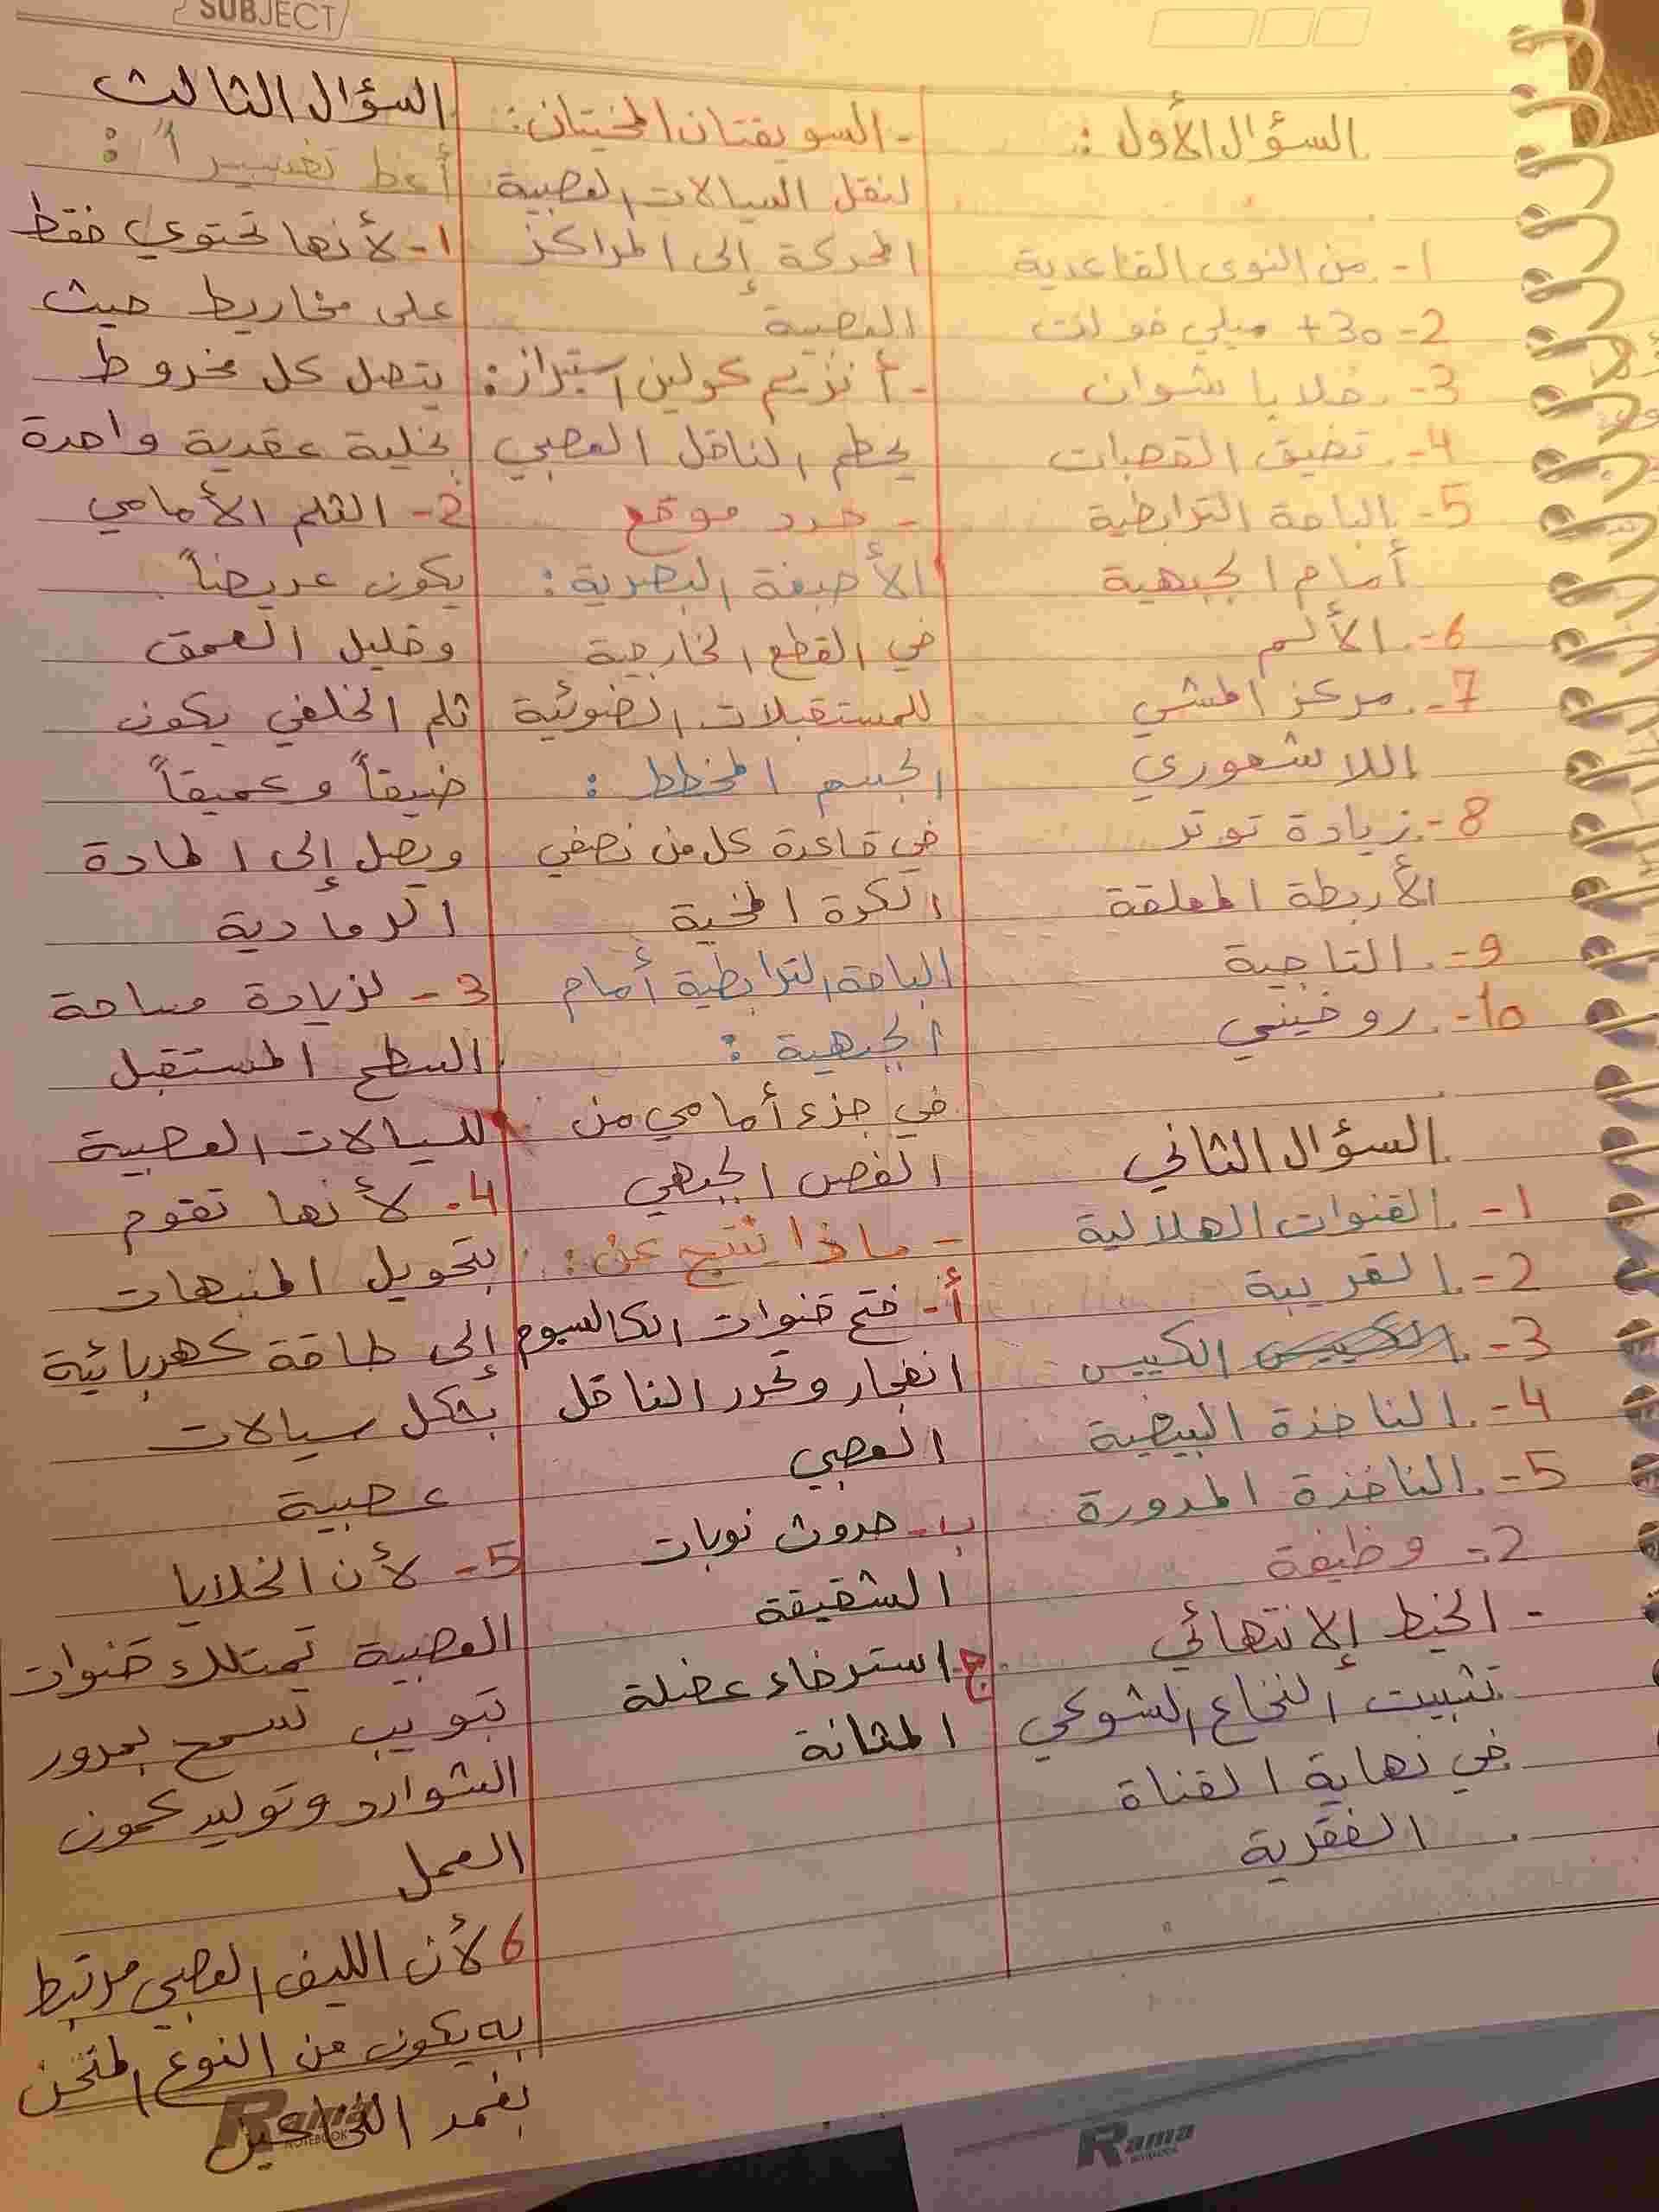 SUBJECT
السؤال الأول :
1- من النوى القاعدية
2- +30 ميلي فولت
3- خلايا شوان
4- تضيق القصبات
5- الباحة الترابطية
أمام الجبهية
6- الألم
7- مركز المشي
اللاشعوري
8- زيادة توتر
الأربطة المعلقة
9- التاجية
10- روفيني
السؤال الثاني
1- القنوات الهلالية
2- القريبة
3- الكييس
4- النافذة البيضية
5- النافذة المدورة
2- وظيفة
- الخيط الإنتهائي
تثبيت النخاع الشوكي
في نهاية القناة
الفقرية
- السويقتان المخيتان:
لنقل السيالات العصبية
المحركة إلى المراكز
العصبية
- أنزيم كولين استيراز:
يحطم الناقل العصبي
- حدد موقع
الأصبغة البصرية :
في القطع الخارجية
للمستقبلات الضوئية
الجسم المخطط :
في قاعدة كل من نصفي
الكرة المخية
الباحة الترابطية أمام
الجبهية :
في جزء أمامي من
الفص الجبهي
- ماذا ينتج عن :
أ- فتح قنوات الكالسيوم
انفجار وتحرر الناقل
العصبي
ب- حدوث نوبات
الشقيقة
ج- استرخاء عضلة
المثانة
السؤال الثالث
أعط تفسيراً :
1- لأنها تحتوي فقط
على مخاريط حيث
يتصل كل مخروط
بخلية عقدية واحدة
2- الثلم الأمامي
يكون عريضاً
وقليل العمق
ثلم الخلفي يكون
ضيقاً وعميقاً
ويصل إلى المادة
الرمادية
3- لزيادة مساحة
السطح المستقبل
للسيالات العصبية
4- لأنها تقوم
بتحويل المنبهات
إلى طاقة كهربائية
بشكل سيالات
عصبية
5- لأن الخلايا
العصبية تمتلك قنوات
تبويب تسمح بمرور
الشوارد وتوليد كمون
العمل
6 لأن الليف العصبي مرتبط
به يكون من النوع المثخن
بغمد النخاعين
Rama
NOTEBOOK
Rama
NOTEBOOK